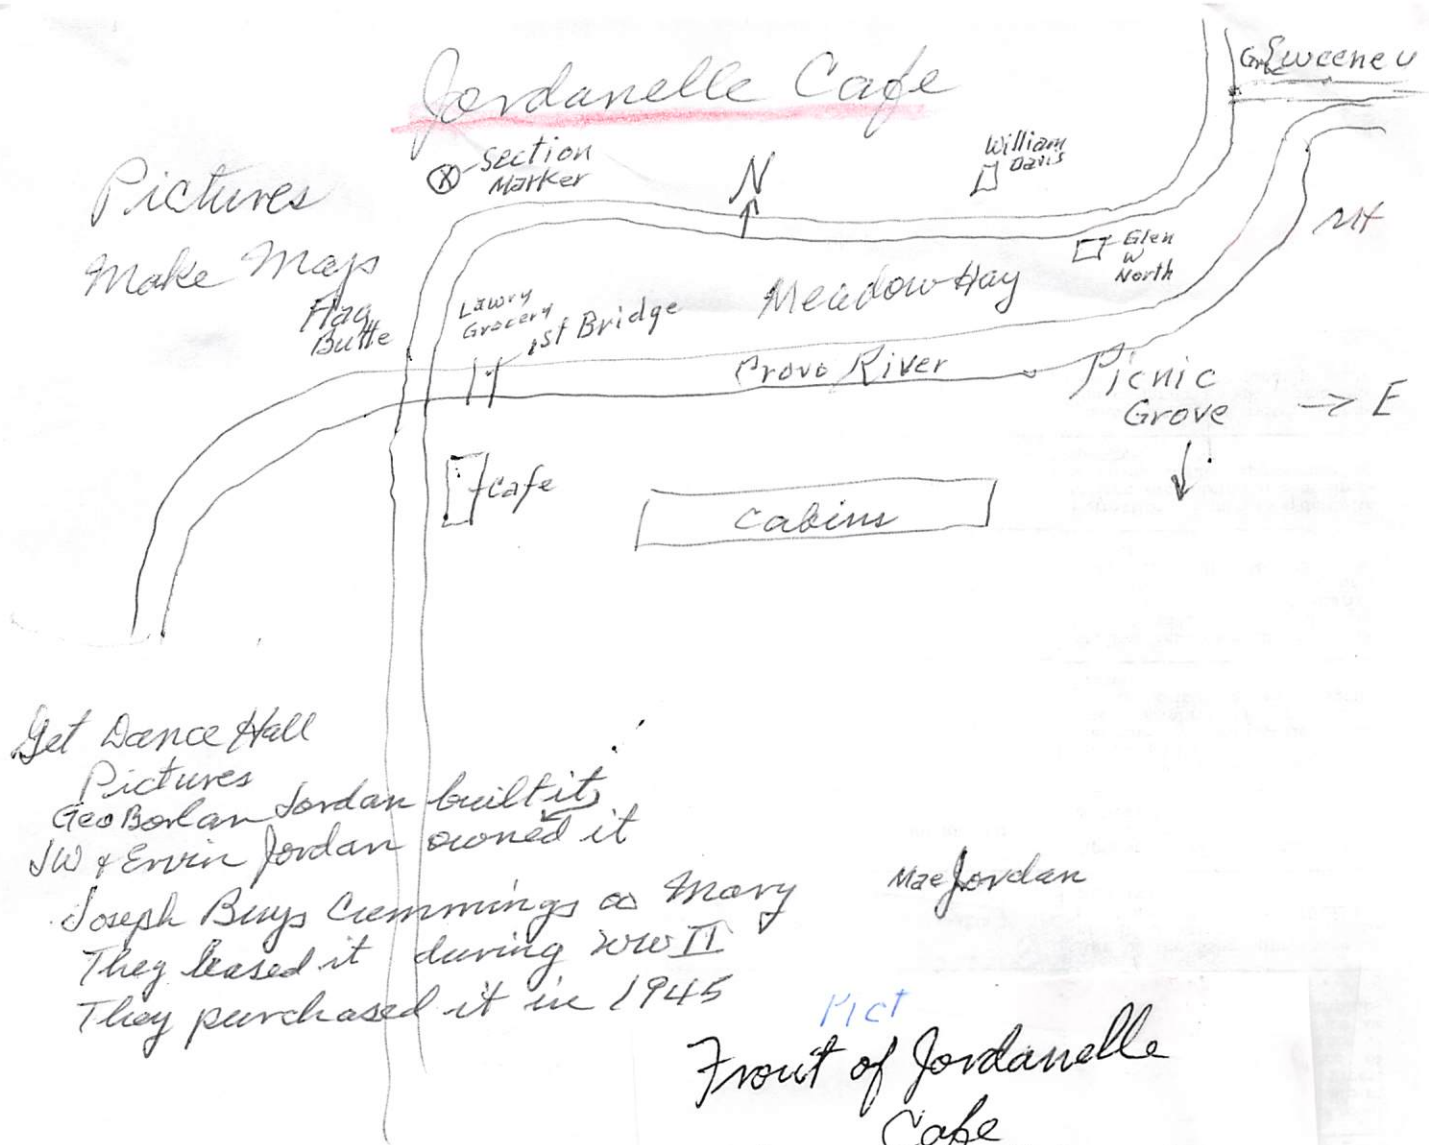 Jordanelle Cafe
Sweeney
Section
Marker
N
William
Davis
Pictures
Make Maps
Glen
W
North
Flag
Butte
Lawry
Grocery
1st Bridge
Meadow Hay
Provo River
Picnic
Grove
→ E
Cafe
Cabins
Get Dance Hall
Pictures
Geo Jordan built it
JW & Ervin Jordan owned it
Joseph Buys Cummings Mary
They leased it during WWII
They purchased it in 1945
Mae Jordan
Pict
Front of Jordanelle
Cafe